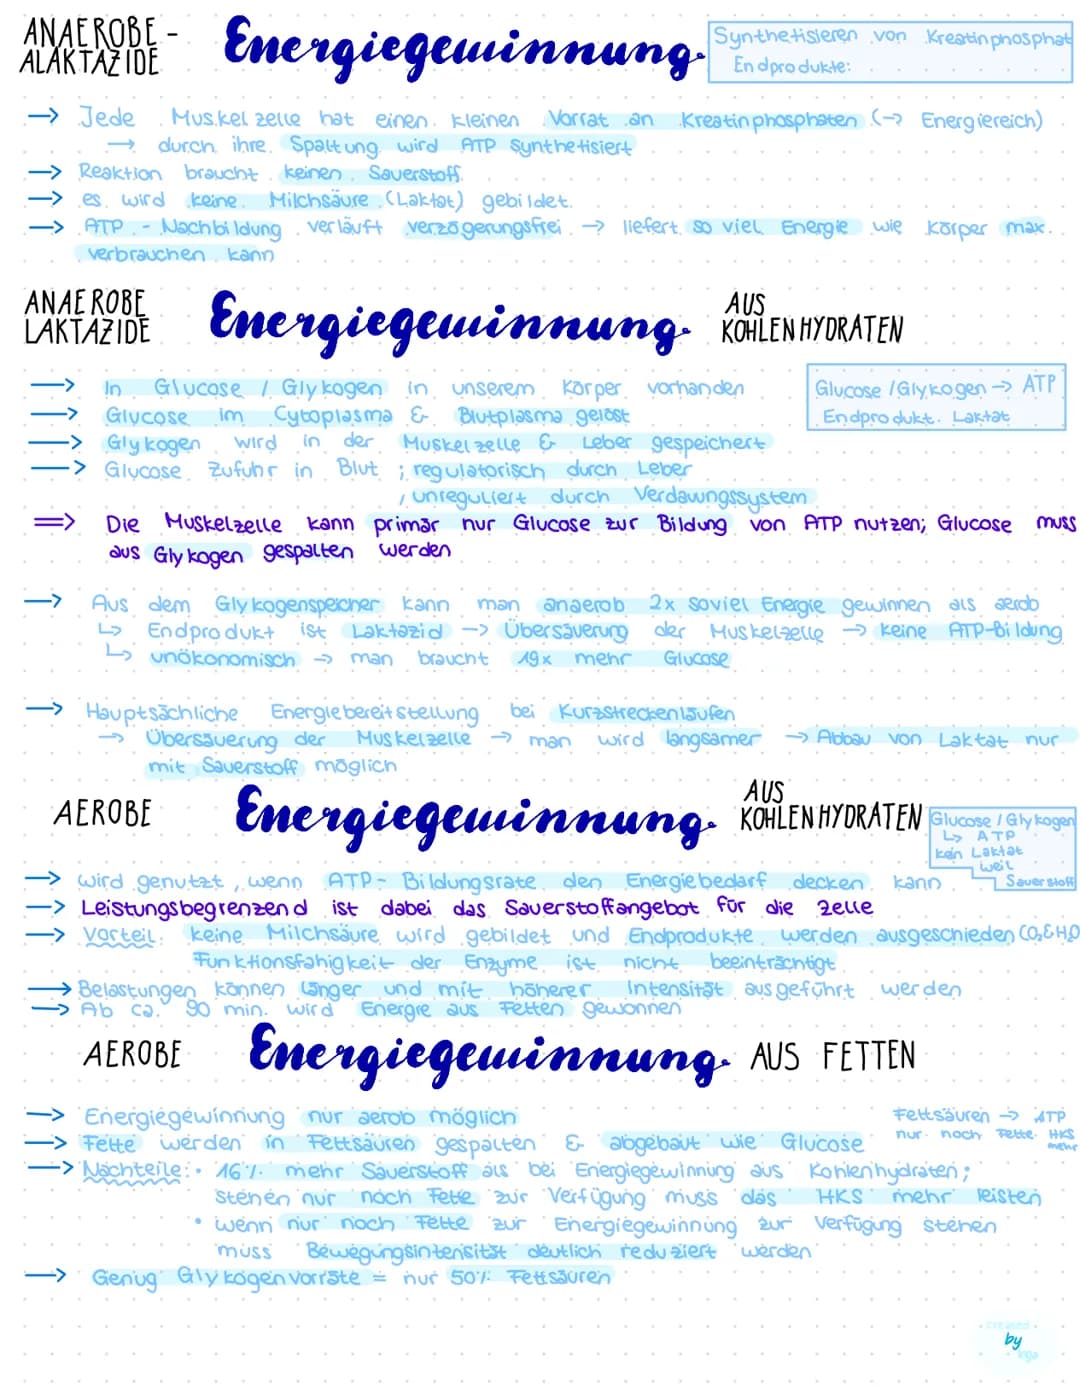 ANAEROBE - ALAKTAZIDE Energiegewinnung
Synthetisieren von Kreatinphosphat
Endprodukte:
→ Jede Muskelzelle hat einen kleinen Vorrat an Kreatinphosphaten (→ Energiereich)
→ durch ihre Spaltung wird ATP synthetisiert
→ Reaktion braucht keinen Sauerstoff
→ es wird keine Milchsäure (Laktat) gebildet.
→ ATP - Nachbildung verläuft verzögerungsfrei → liefert so viel Energie wie Körper max.
verbrauchen kann
ANAEROBE LAKTAZIDE Energiegewinnung AUS KOHLENHYDRATEN
→ In Glucose / Glykogen in unserem Körper vorhanden
Glucose /Glykogen → ATP
Endprodukt: Laktat
→ Glucose im Cytoplasma & Blutplasma gelöst
→ Glykogen wird in der Muskelzelle & Leber gespeichert
→ Glucose Zufuhr in Blut ; regulatorisch durch Leber
, unreguliert durch Verdauungssystem
⇒ Die Muskelzelle kann primär nur Glucose zur Bildung von ATP nutzen; Glucose muss
aus Glykogen gespalten werden
→ Aus dem Glykogenspeicher kann man anaerob 2x soviel Energie gewinnen als aerob
↳ Endprodukt ist Laktazid → Übersäuerung der Muskelzelle → keine ATP-Bildung
↳ unökonomisch → man braucht 19x mehr Glucose
→ Hauptsächliche Energiebereitstellung bei Kurzstreckenläufen
→ Übersäuerung der Muskelzelle → man wird langsamer → Abbau von Laktat nur
mit Sauerstoff möglich
AEROBE Energiegewinnung AUS KOHLENHYDRATEN
Glucose / Glykogen
↳ ATP
kein Laktat
weil
Sauerstoff
→ wird genutzt, wenn ATP- Bildungsrate den Energiebedarf decken kann
→ Leistungsbegrenzend ist dabei das Sauerstoffangebot für die Zelle
→ Vorteil: keine Milchsäure wird gebildet und Endprodukte werden ausgeschieden (CO₂&H₂O
Funktionsfähigkeit der Enzyme ist nicht beeinträchtigt
→ Belastungen können länger und mit höherer Intensität ausgeführt werden
→ Ab ca. 90 min. wird Energie aus Fetten gewonnen
AEROBE Energiegewinnung AUS FETTEN
→ Energiegewinnung nur aerob möglich
Fettsäuren → ATP
nur noch Fette: HKS
mehr
→ Fette werden in Fettsäuren gespalten & abgebaut wie Glucose
→ Nachteile: • 16% mehr Sauerstoff als bei Energiegewinnung aus Kohlenhydraten;
stehen nur noch Fette zur Verfügung muss das HKS mehr leisten
• wenn nur noch Fette zur Energiegewinnung zur Verfügung stehen
muss Bewegungsintensität deutlich reduziert werden
→ Genug Glykogenvorräte = nur 50% Fettsäuren
created
by